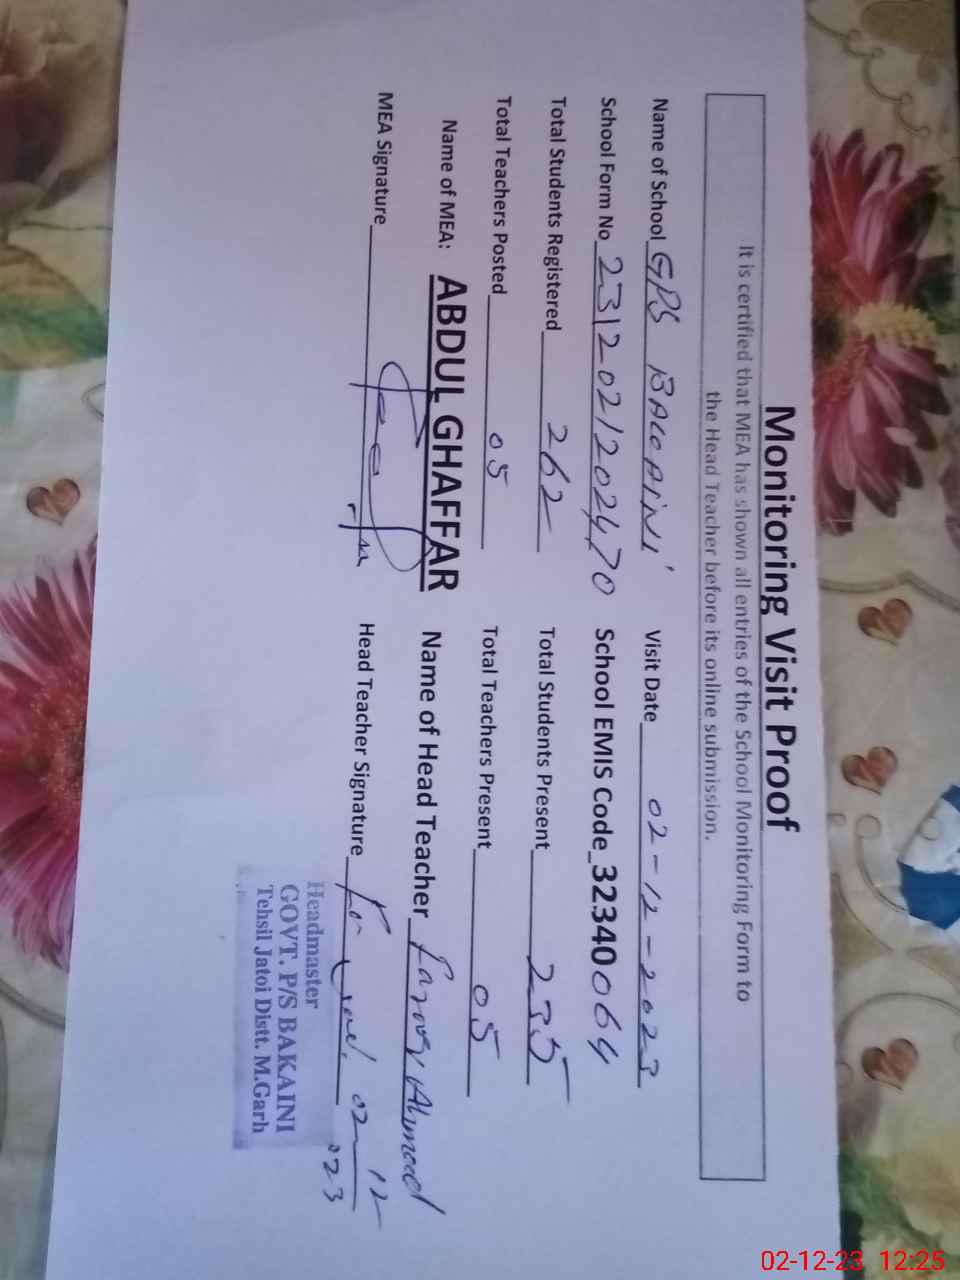 Monitoring Visit Proof
It is certified that MEA has shown all entries of the School Monitoring Form to
the Head Teacher before its online submission.
Name of School GPS BAKAINI Visit Date 02-12-2023
School Form No 2312021202470 School EMIS Code_32340064
Total Students Registered 262 Total Students Present 235
Total Teachers Posted 05 Total Teachers Present 05
Name of MEA: ABDUL GHAFFAR Name of Head Teacher Ahmad
MEA Signature Head Teacher Signature
02-12
023
Headmaster
GOVT. P/S BAKAINI
Tehsil Jatoi Distt. M.Garh
02-12-23 12:25